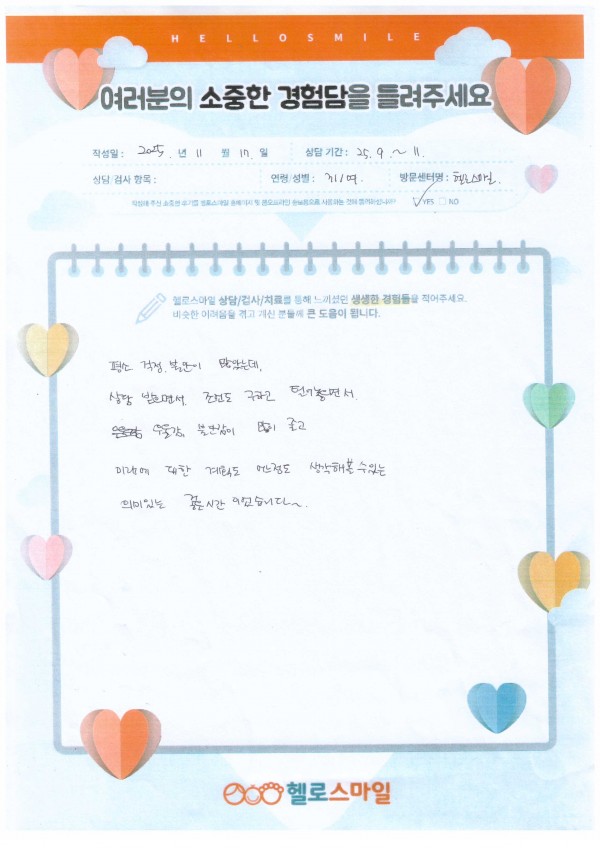 HELLOSMILE
여러분의 소중한 경험담을 들려주세요
작성일 : 2025 년 11 월 17 일 상담 기간 : 25. 9. ~ 11.
상담/검사 항목 : 연령/성별 : 31/여 방문센터명 : 헬로스마일
작성해 주신 소중한 후기를 헬로스마일 홈페이지 및 온오프라인 홍보용으로 사용하는 것에 동의하십니까? YES NO
헬로스마일 상담/검사/치료를 통해 느끼셨던 생생한 경험들을 적어주세요.
비슷한 어려움을 겪고 계신 분들께 큰 도움이 됩니다.
평소 걱정, 불안이 많았는데,
상담 받으면서, 조언도 구하고 털어놓으면서.
우울감, 불안감이 많이 줄고
미래에 대한 계획도 어느정도 생각해볼 수 있는
의미있는 시간 이였습니다~.
헬로스마일